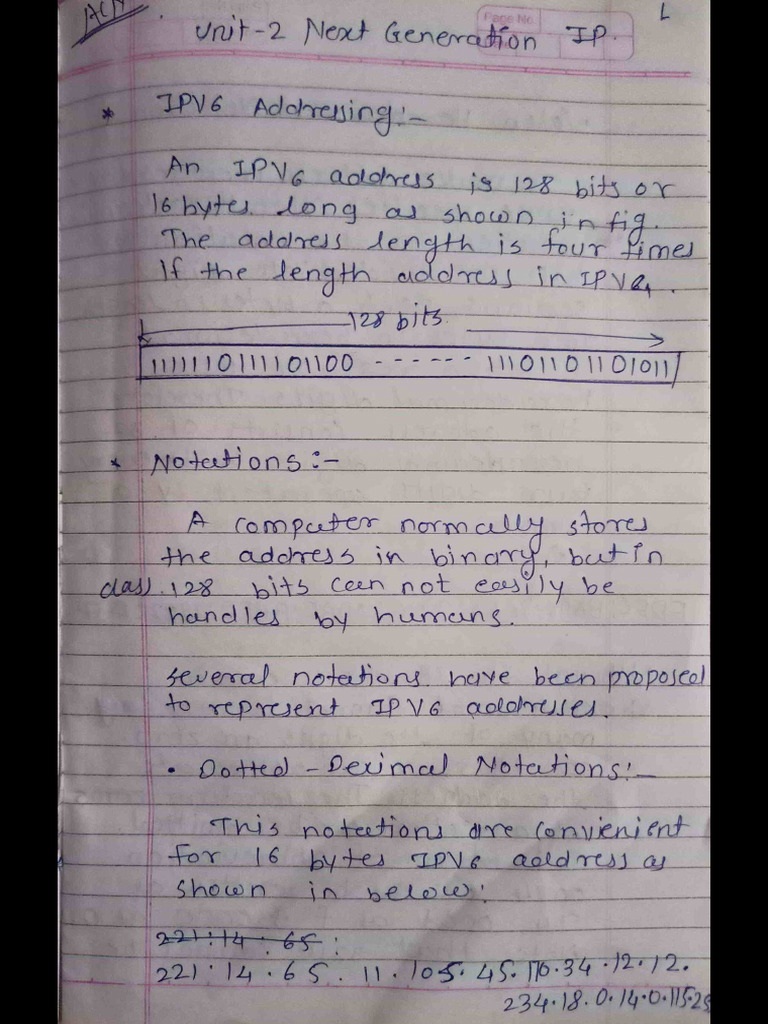 ACN
L
Page No
Unit-2 Next Generation IP.
* IPV6 Addressing:-
An IPV6 address is 128 bits or
16 bytes long as shown in fig.
The address length is four times
if the length address in IPV4.
128 bits
1111110111101100 ------ 1110110110 1011
* Notations:-
A computer normally stores
the address in binary, but in
class 128 bits can not easily be
handles by humans.
several notations have been proposed
to represent IPV6 addresses.
• Dotted-Decimal Notations:-
This notations are convienient
for 16 bytes IPV6 address as
shown in below:
221:14.65:
221.14.65.11.105.45.170.34.12.12.
234.18.0.14.0.115.25